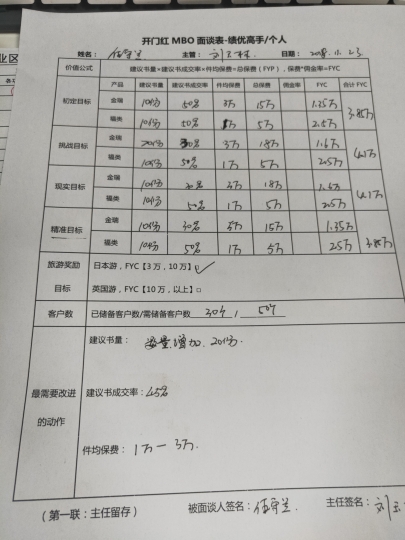 开门红 MBO 面谈表-绩优高手/个人
姓名： 任守兰 主管： 刘 日期：
价值公式 建议书量×建议书成交率×件均保费=总保费（FYP），保费*佣金率=FYC
产品 建议书量 建议书成交率 件均保费 总保费 佣金率 FYC 合计 FYC
初定目标 金瑞 10份 50% 3万 15万 1.35万 3.85万
福类 10份 50% 1万 5万 2.5万
挑战目标 金瑞 20份 30% 3万 18万 1.6万 4.1万
福类 10份 50% 1万 5万 2.5万
现实目标 金瑞 3万 18万 1.6万 4.1万
福类 10份 50% 1万 5万 2.5万
精准目标 金瑞 10份 3万 15万 1.35万
福类 10份 50% 1万 5万 2.5万 3.85万
旅游奖励 日本游，FYC【3 万，10 万】□✓
目标 英国游，FYC【10 万，以上】□
客户数 已储备客户数/需储备客户数 30个 / 50个
建议书量： 增加. 20份.
最需要改进
的动作
建议书成交率：45%
件均保费：1万一3万.
被面谈人签名：任守兰. 主任签名：刘
（第一联：主任留存）